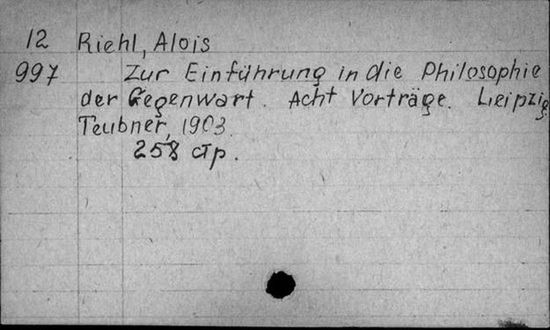 12 Riehl, Alois
997 Zur Einführung in die Philosophie
der Gegenwart. Acht Vorträge. Leipzig,
Teubner, 1903.
258 стр.